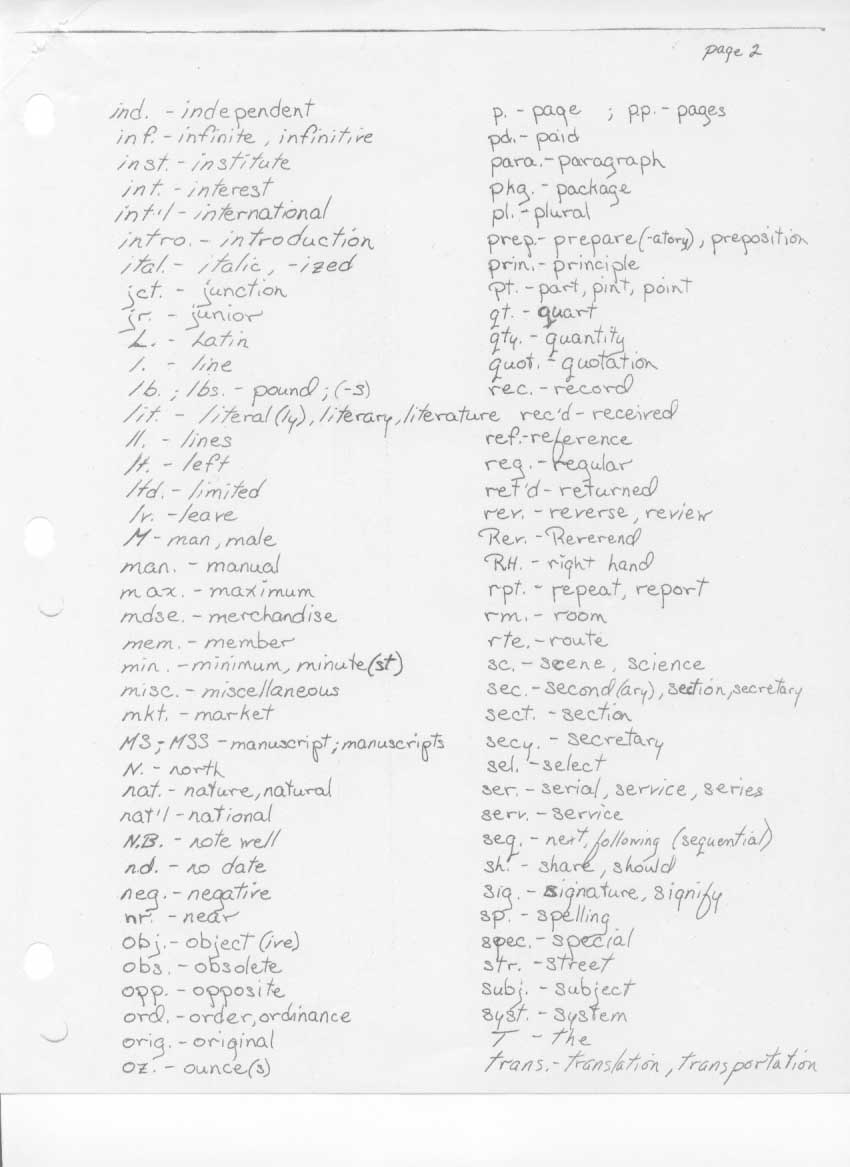 page 2
ind. - independent
inf. - infinite, infinitive
inst. - institute
int. - interest
int'l - international
intro. - introduction
ital. - italic, -ized
jct. - junction
jr. - junior
L. - Latin
l. - line
lb. ; lbs. - pound ; (-s)
lit. - literal(ly), literary, literature
ll. - lines
lt. - left
ltd. - limited
lv. - leave
M - man, male
man. - manual
max. - maximum
mdse. - merchandise
mem. - member
min. - minimum, minute(st)
misc. - miscellaneous
mkt. - market
MS ; MSS - manuscript ; manuscripts
N. - north
nat. - nature, natural
nat'l - national
N.B. - note well
n.d. - no date
neg. - negative
nr. - near
obj. - object (ive)
obs. - obsolete
opp. - opposite
ord. - order, ordinance
orig. - original
oz. - ounce(s)
p. - page ; pp. - pages
pd. - paid
para. - paragraph
pkg. - package
pl. - plural
prep. - prepare (-atory), preposition
prin. - principle
pt. - part, pint, point
qt. - quart
qty. - quantity
quot. - quotation
rec. - record
rec'd - received
ref. - reference
reg. - regular
ret'd - returned
rev. - reverse, review
Rev. - Reverend
RH. - right hand
rpt. - repeat, report
rm. - room
rte. - route
sc. - scene, science
sec. - second(ary), section, secretary
sect. - section
secy. - secretary
sel. - select
ser. - serial, service, series
serv. - service
seq. - next, following (sequential)
sh. - share, should
sig. - signature, signify
sp. - spelling
spec. - special
str. - street
subj. - subject
syst. - system
T - the
trans. - translation, transportation